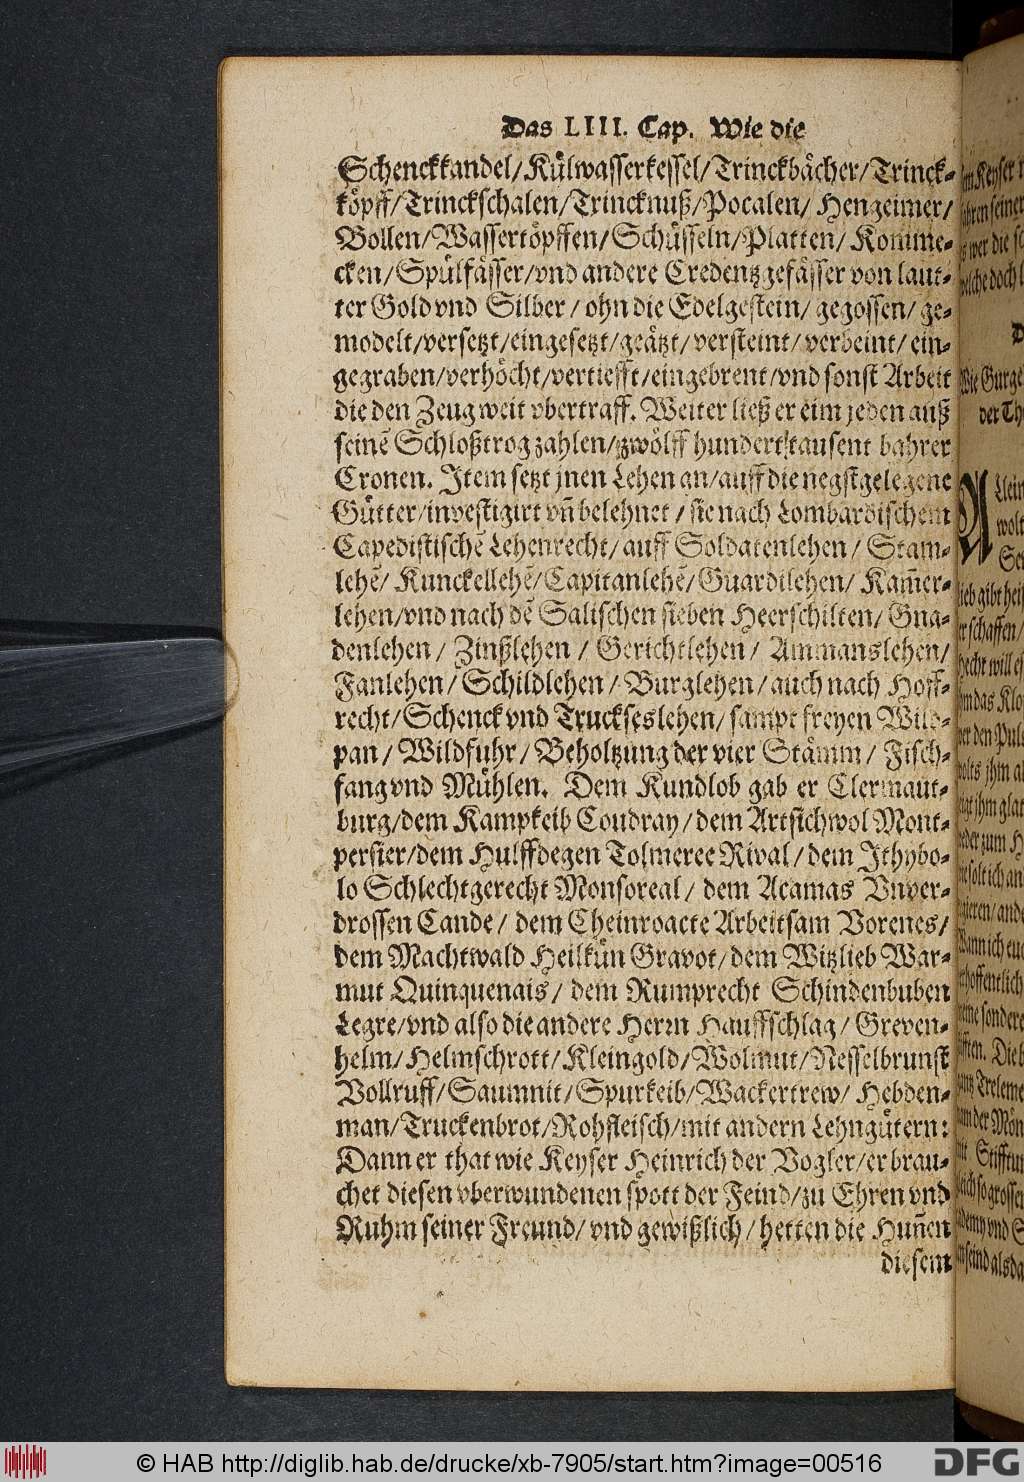 Das LIII. Cap. Wie die
Schenckkandel/Külwasserkessel/Trinckbächer/Trinck-
köpff/Trinckschalen/Trincknuß/Pocalen/ Hengeimer/
Bollen/Wassertöpffen/Schüsseln/Platten/ Komme-
cken/Spülfässer/vnd andere Credentzgefässer von laut-
ter Gold vnd Silber / ohn die Edelgestein/ gegossen/ ge-
modelt/versetzt/eingesetzt/geätzt/ versteint/ verbeint/ ein-
gegraben/verhöcht/vertiefft/eingebrent/vnd sonst Arbeit
die den Zeug weit vbertraff. Weiter ließ er eim jeden auß
seinē Schloßtrog zahlen/zwölff hundert tausent bahrer
Cronen. Item setzt jnen Lehen an/auff die negstgelegene
Gütter/investigirt vñ belehnet / sie nach Lombardischem
Capedistischē Lehenrecht/auff Soldatenlehen/ Stam-
lehē/ Kunckellehē/Capitanlehē/Guardilehen/ Kam̄er-
lehen/vnd nach dē Salischen sieben Heerschilten/ Gna-
denlehen / Zinßlehen / Gerichtlehen/ Ammanslehen/
Fanlehen/ Schildlehen / Burglehen/ auch nach Hoff-
recht/Schenck vnd Truckseslehen/ sampt freyen Wild-
pan/ Wildfuhr/ Beholtzung der vier Stämm/ Fisch-
fang vnd Mühlen. Dem Kundlob gab er Clermaut-
burg/dem Kampkeib Coudray/dem Artsichwol Mont-
persier/dem Hulffdegen Tolmeree Rival/dem Ithybo-
lo Schlechtgerecht Monsoreal/ dem Acamas Vnver-
drossen Cande/ dem Cheinroacte Arbeitsam Vorenes/
dem Machtwald Heilkün Gravot/dem Witzlieb War-
mut Quinquenais/ dem Rumprecht Schindenbuben
Legre/vnd also die andere Herrn Hauffschlag/ Greven-
helm/Helmschrott/Kleingold/Wolmut/Nesselbrunst
Vollruff/Saumnit/Spurkeib/Wackertrew/ Hebden-
man/Truckenbrot/Rohfleisch/mit andern Lehngütern:
Dann er that wie Keyser Heinrich der Vogler/er brau-
chet diesen vberwundenen spott der Feind/zu Ehren vnd
Ruhm seiner Freund/ vnd gewißlich/ hetten die Huñen
diesem
© HAB http://diglib.hab.de/drucke/xb-7905/start.htm?image=00516
DFG